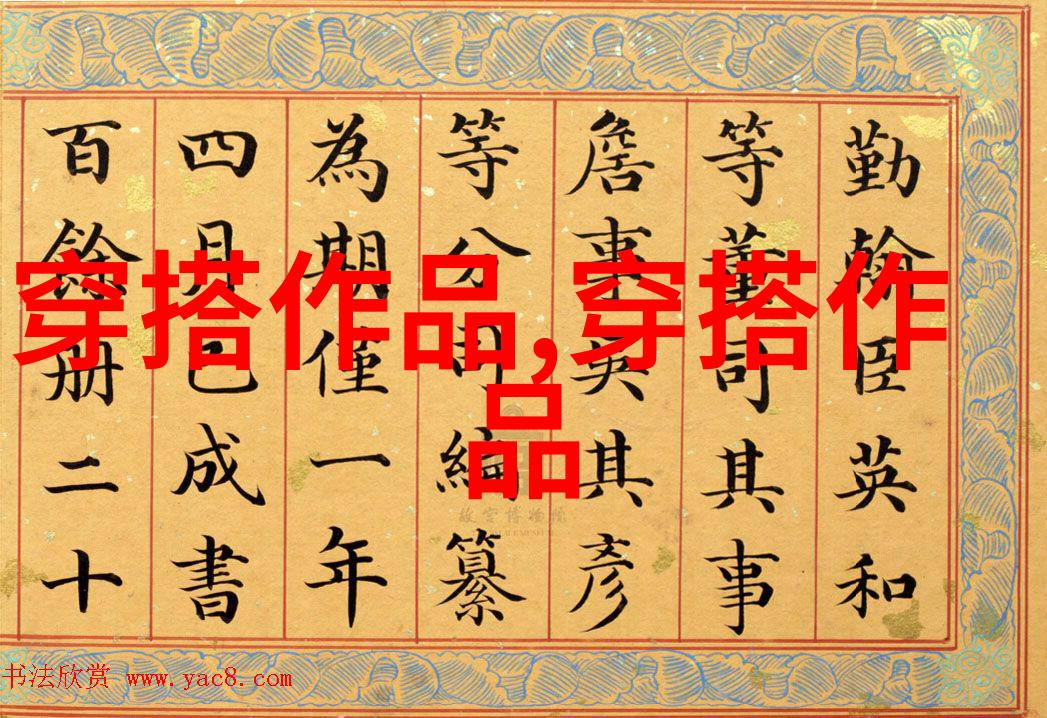 穿搭作品,穿搭作
品
勤翰臣英和
等董司其事
詹事吳其彥
等分司編纂
為期僅一年
四月已成書
百餘冊二十
故宫博物院
书法欣赏 www.yac8.com